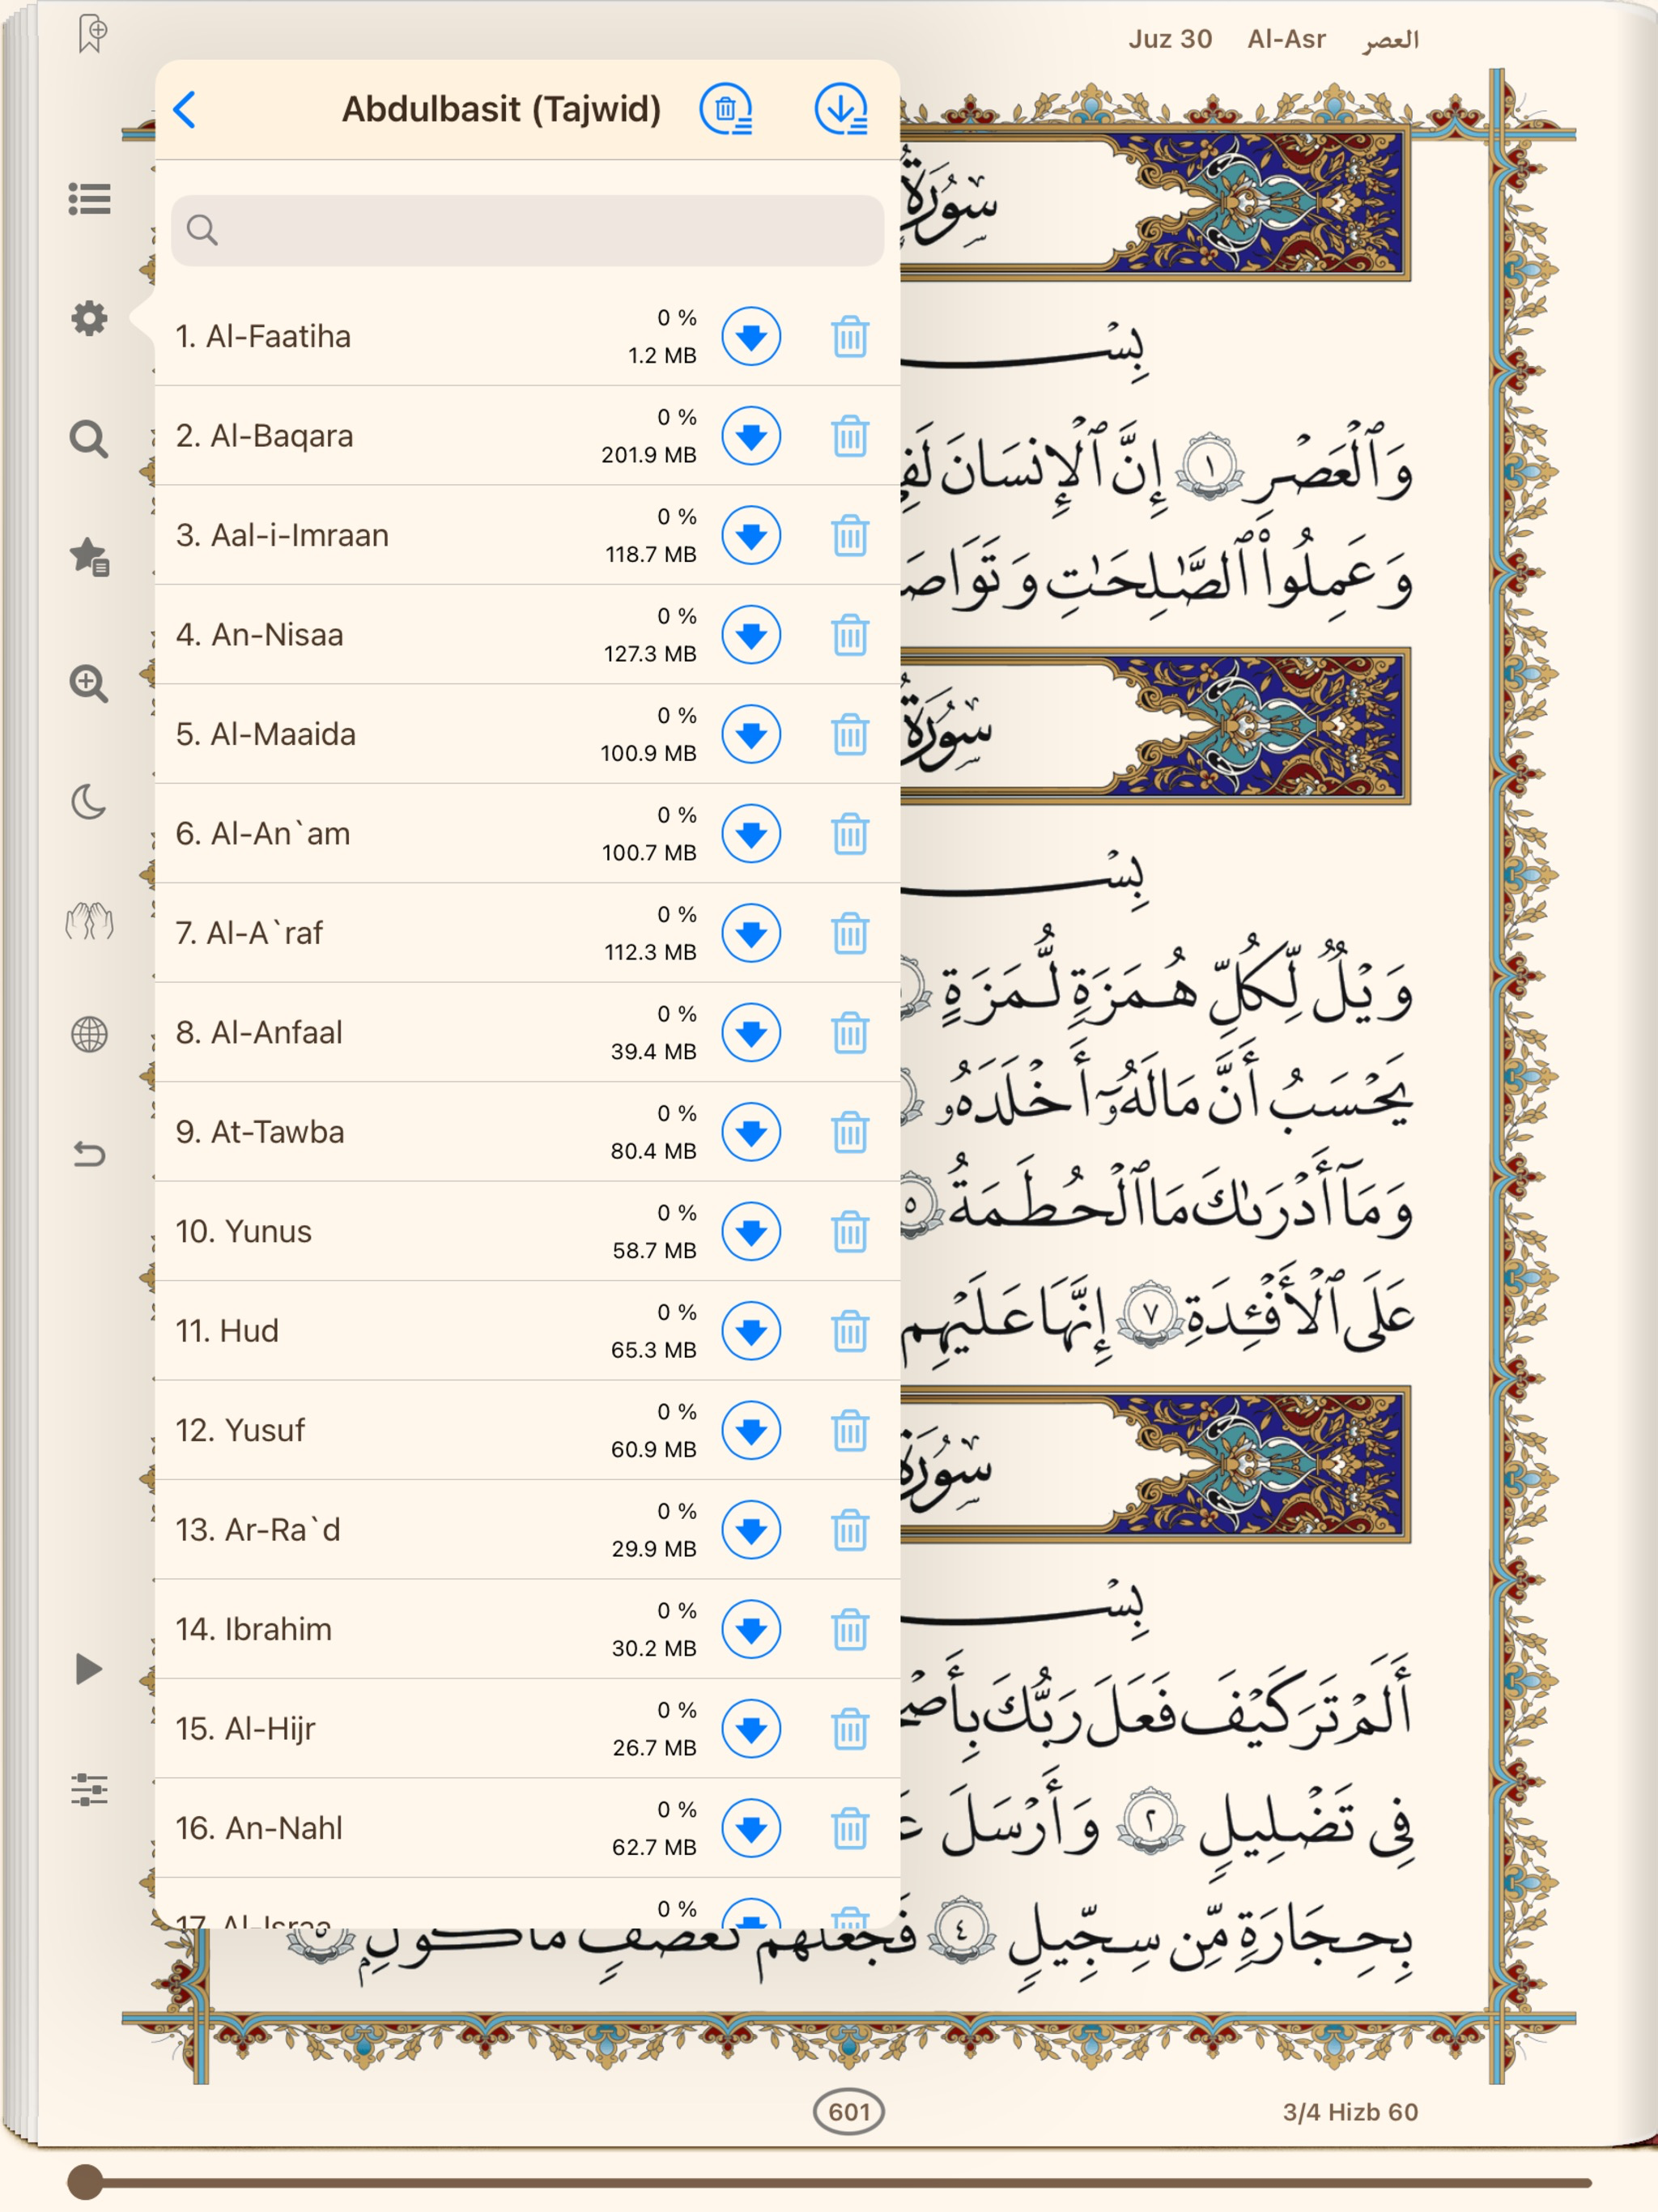 Juz 30 Al-Asr العصر
Abdulbasit (Tajwid)
1. Al-Faatiha 0 % 1.2 MB
2. Al-Baqara 0 % 201.9 MB
3. Aal-i-Imraan 0 % 118.7 MB
4. An-Nisaa 0 % 127.3 MB
5. Al-Maaida 0 % 100.9 MB
6. Al-An`am 0 % 100.7 MB
7. Al-A`raf 0 % 112.3 MB
8. Al-Anfaal 0 % 39.4 MB
9. At-Tawba 0 % 80.4 MB
10. Yunus 0 % 58.7 MB
11. Hud 0 % 65.3 MB
12. Yusuf 0 % 60.9 MB
13. Ar-Ra`d 0 % 29.9 MB
14. Ibrahim 0 % 30.2 MB
15. Al-Hijr 0 % 26.7 MB
16. An-Nahl 0 % 62.7 MB
17. Al-Israa 0 %
سُورَةُ
وَٱلْعَصْرِ ١ إِنَّ ٱلْإِنسَانَ لَفِى
وَعَمِلُوا۟ ٱلصَّـٰلِحَـٰتِ
سُورَةُ
وَيْلٌ لِّكُلِّ هُمَزَةٍ لُّمَزَةٍ
يَحْسَبُ أَنَّ مَالَهُۥٓ أَخْلَدَهُۥ
وَمَآ أَدْرَىٰكَ مَا ٱلْحُطَمَةُ ٥
عَلَى ٱلْأَفْـِٔدَةِ ٧ إِنَّهَا عَلَيْهِم
سُورَةُ
أَلَمْ تَرَ كَيْفَ فَعَلَ رَبُّكَ
فِى تَضْلِيلٍ ٢ وَأَرْسَلَ
بِحِجَارَةٍ مِّن سِجِّيلٍ ٤ فَجَعَلَهُمْ كَعَصْفٍ مَّأْكُولٍۭ ٥
601
3/4 Hizb 60